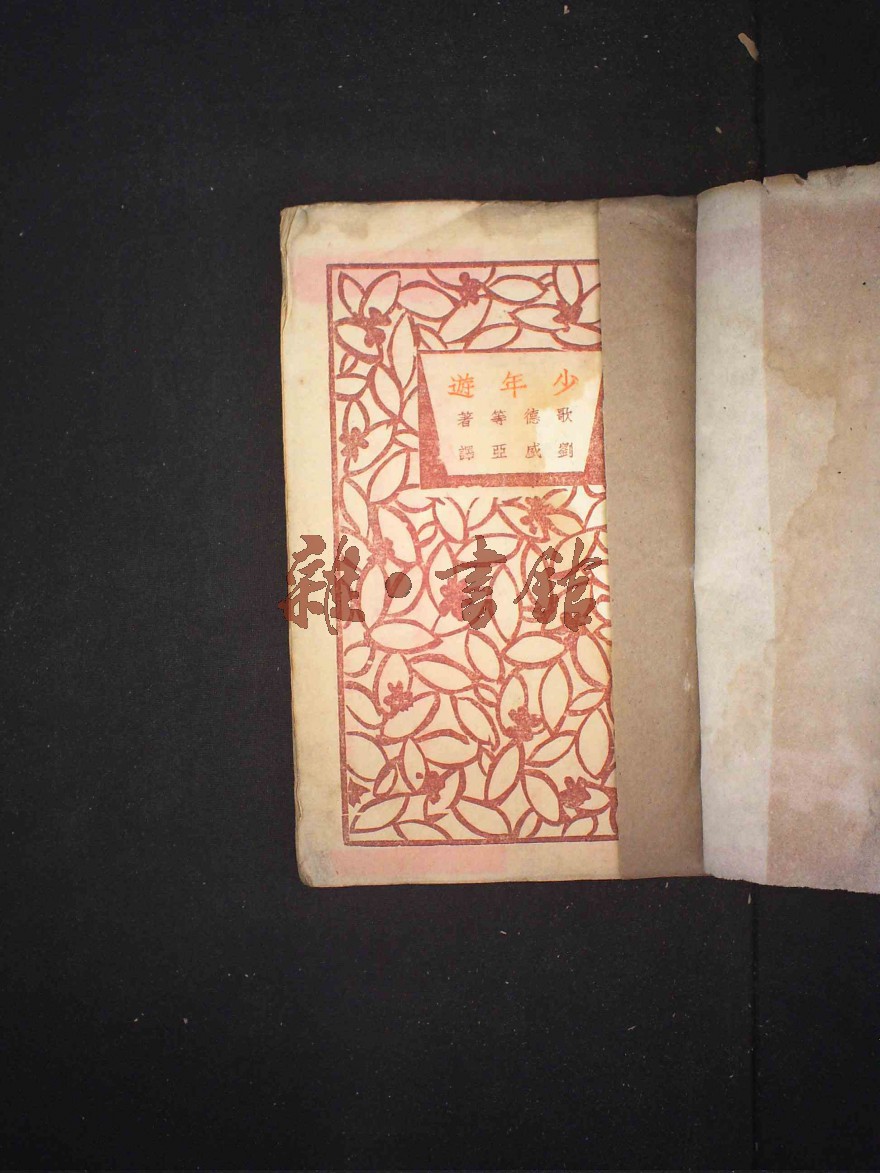 少年遊
歌德等著
劉威亞譯
雜·書館